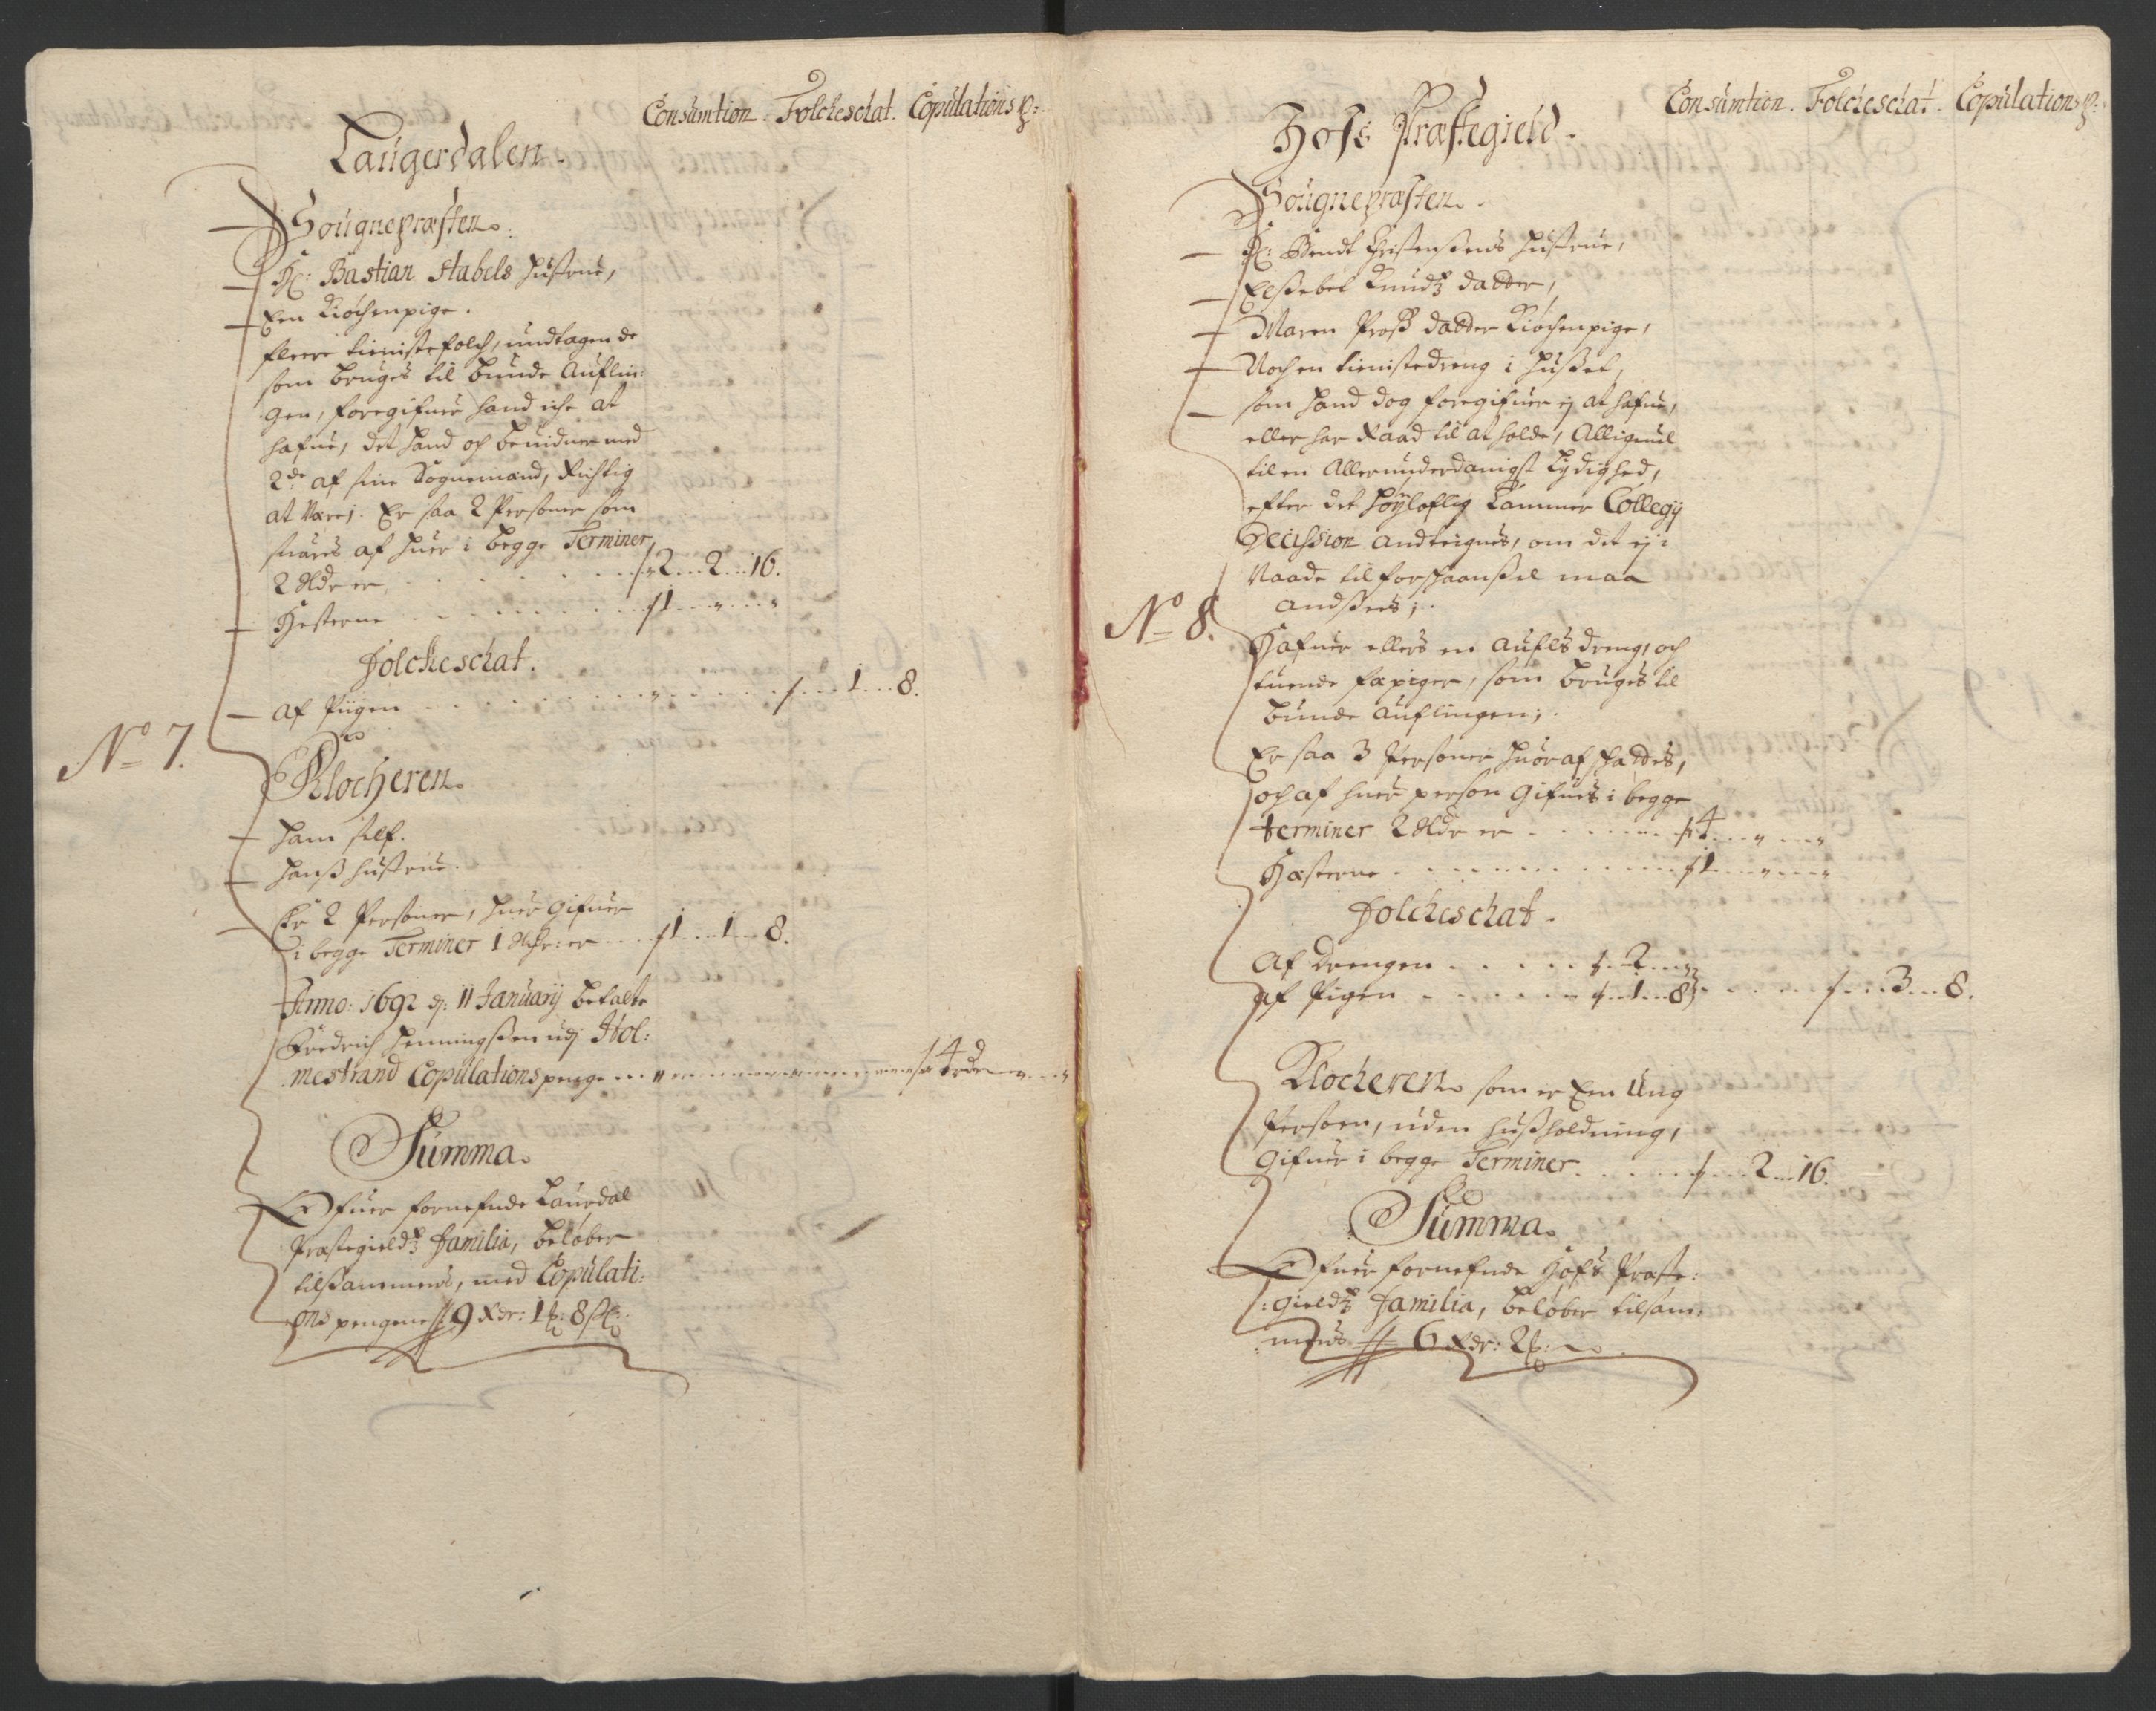 Consumtion. Folcheschat. Copulations p:
Laugerdalen.
Sougnepræsten.
Hr: Bastian Stabels Hustrue,
Een Kiøchenpige.
fleere tienistefolch, undtagen de
som bruges til bunde Auflin:
gen, foregifuer hand iche at
hafue, det hand och beuidner med
2de af sine Sognemænd, Richtig
at være;. Er saa 2 Personer som
suares af huer i begge Terminer,
2 Rdr er . . . . . . 2 . . 2 . . 16.
Hesterne . . . . . . 1 . . " . . "
Folcheschat.
af Piigen . . . . . . 1 . . 8.
No 7.
Klocheren.
Ham self.
Hanß hustrue.
Er 2 Personer, huer gifuer
i begge Terminer 1 Rdr: er . . . 1 . . 1 . . 8.
Anno: 1692 d: 11 January betalte
Fredrich Henningßen udj Hol:
mestrand Copulations penge . . . . . . 4
Summa.
Ofuer forneffnde Laurdal
Præstegieldtz Familia, beløber
tilßammens, med Copulati:
ons pengene 9 Rdr: 1 : 8 ß:
Consumtion. Folcheschat. Copulations p:
Hofs Præstegield.
Sougnepræsten.
Hr: Bendt Christenßens Hustrue,
Elßebet Knudtz datter,
Maren Proß datter Kiøchenpige,
Noch en tienistedreng i Hußet,
som hand dog foregifuer ej at hafue,
eller har Raad til at holde, Alligeuel
til en Allerunderdanigst Lydighed,
efter det Høyloflig Cammer Collegij
Decission andteignes, om det ej
Naade til forskaanßel maa
andsees;.
No 8.
Hafuer ellers en aufls dreng, och
tuende fæpiger, som bruges til
bunde auflingen;.
Er saa 3 Personer huoraf schattes,
och af huer person gifues i begge
terminer 2 Rdr er . . . . . . 4 . . " . . "
Hæsterne . . . . . . 1 . . " . . "
Folcheschat.
Af drengen . . . . . 2 . . "
af Pigen . . . . . 1 . . 8 . . . . . 3 . . 8.
Klocheren som er Een Ung
Persoen, uden Hußholdning,
gifuer i begge Terminer . . . . . 2 . . 16.
Summa.
Ofuer forneffnde Hofs Præste:
gieldtz Familia, beløber tilsam:
mens 6 Rdr: 2 :